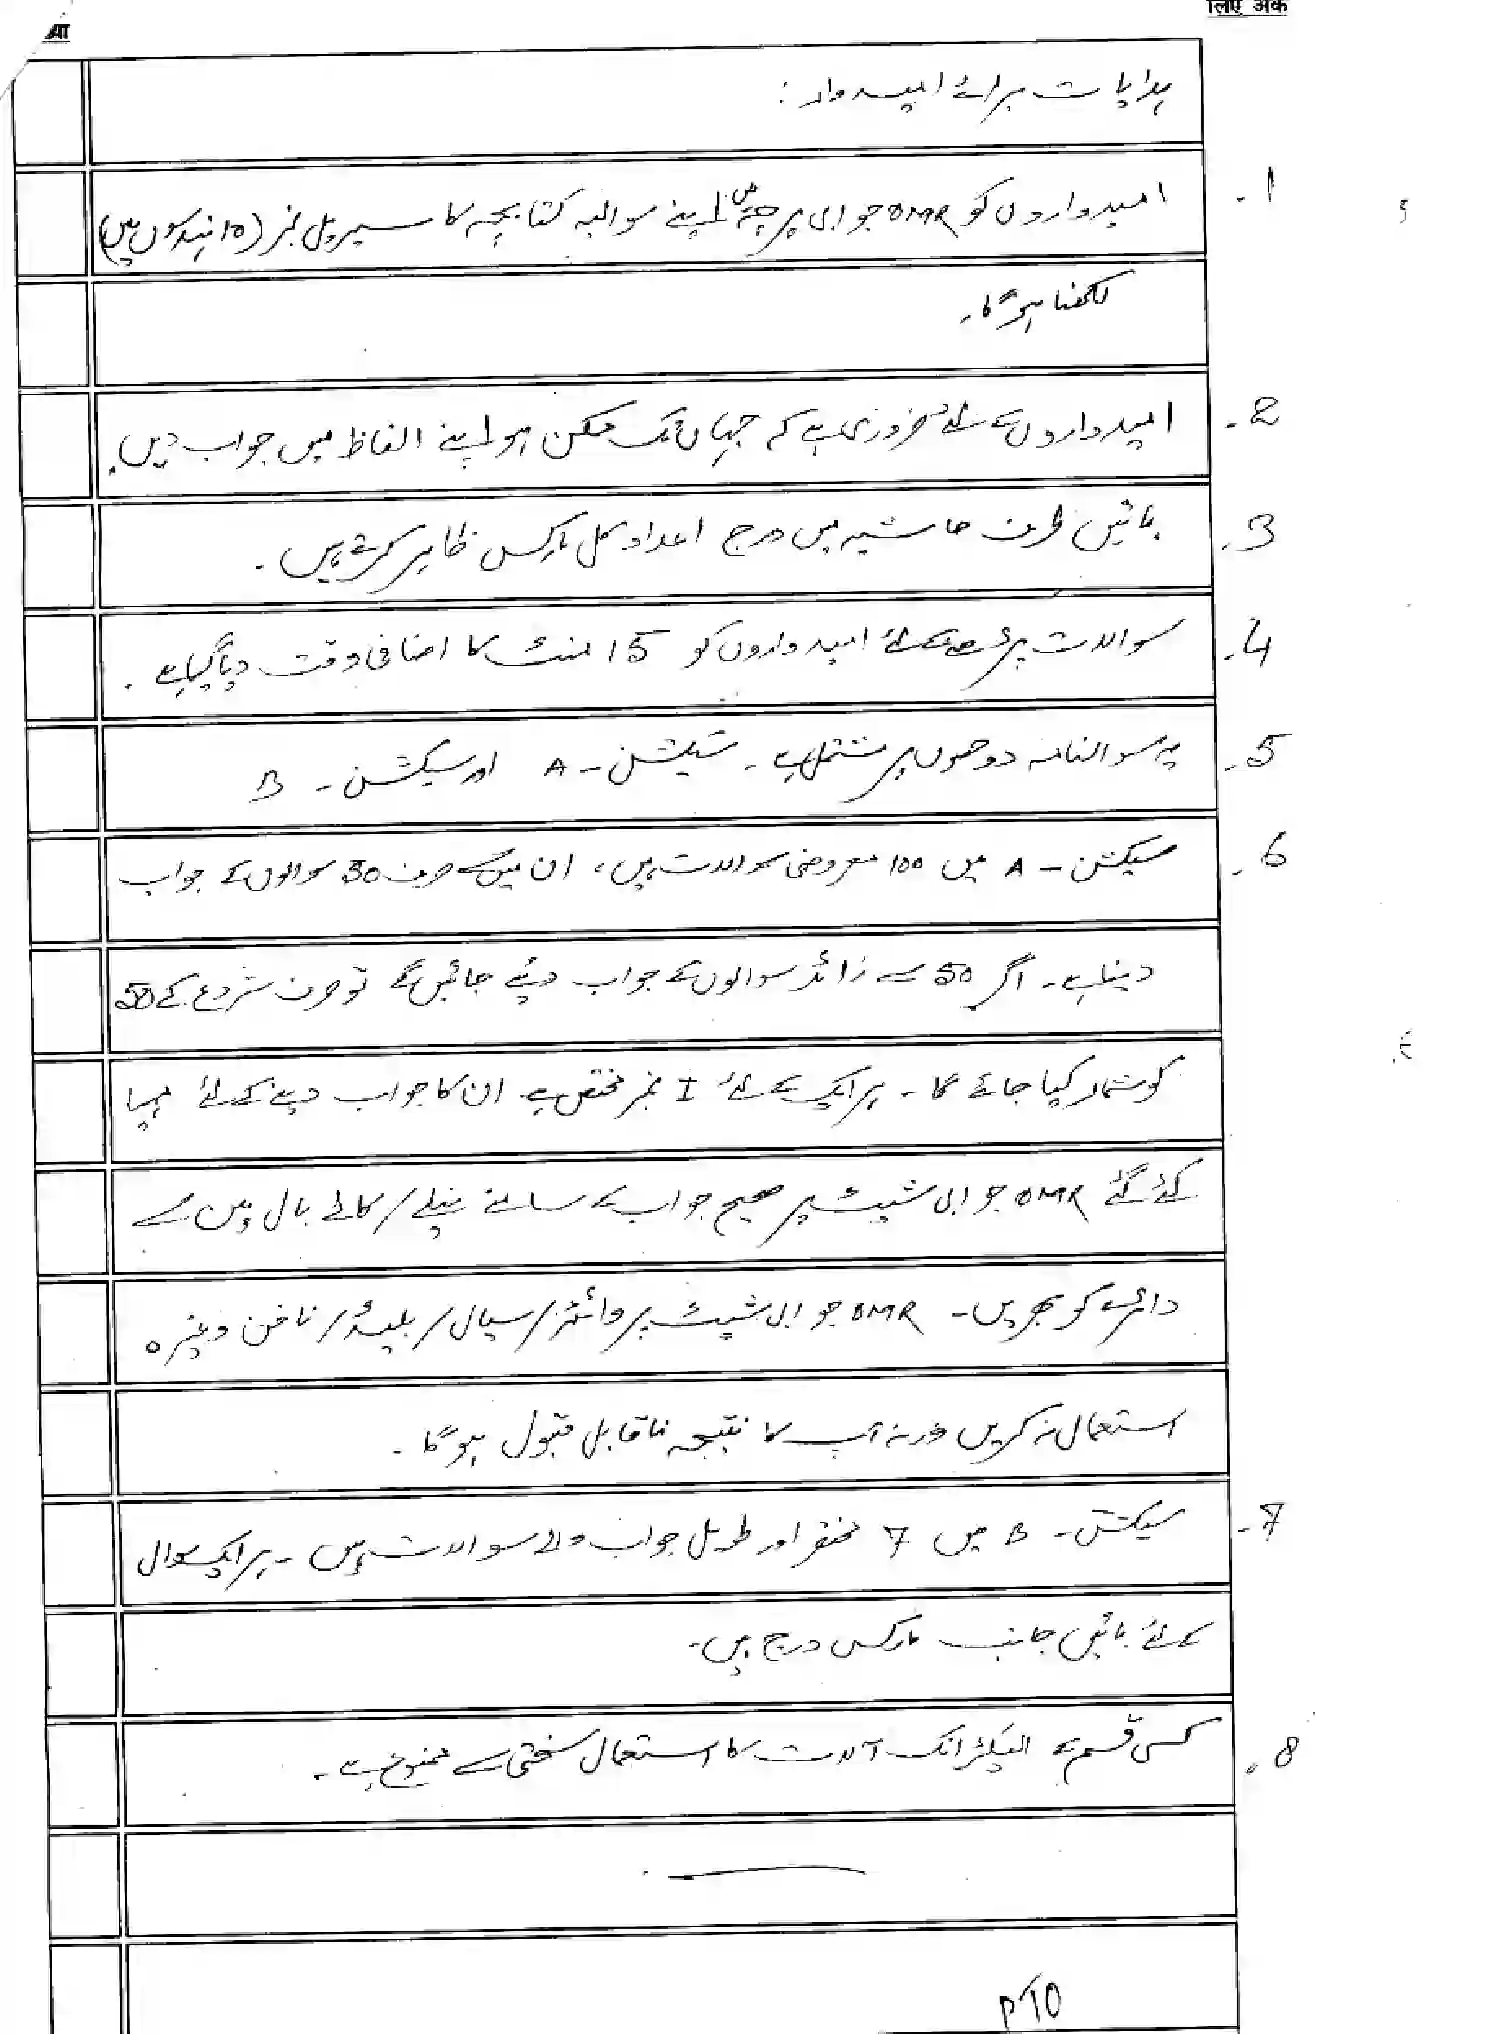 लिए अंक
ہدایات برائے امیدوار :
1- امیدواروں کو OMR جوابی پرچہ میں اپنے سوالیہ کتابچہ کا سیریل نمبر (10 ہندسوں میں)
لکھنا ہوگا۔
2- امیدواروں کے لئے ضروری ہے کہ جہاں تک ممکن ہو اپنے الفاظ میں جواب دیں۔
3- بائیں طرف حاشیہ میں درج اعداد کل مارکس ظاہر کرتے ہیں۔
4- سوالات پڑھنے کے لئے امیدواروں کو 15 منٹ کا اضافی وقت دیا گیا ہے۔
5- یہ سوالنامہ دو حصوں پر مشتمل ہے۔ سیکشن - A اور سیکشن - B
6- سیکشن - A میں 100 معروضی سوالات ہیں، ان میں سے صرف 50 سوالوں کے جواب
دینا ہے۔ اگر 50 سے زائد سوالوں کے جواب دیئے جائیں گے تو صرف شروع کے 50
کو شمار کیا جائے گا۔ ہر ایک کے لئے 1 نمبر مختص ہے۔ ان کا جواب دینے کے لئے مہیا
کئے گئے OMR جوابی شیٹ پر صحیح جواب کے سامنے نیلے / کالے بال پین سے
دائرے کو بھریں۔ OMR جوابی شیٹ پر وائٹنر / سیال / بلیڈ / ناخن وغیرہ
استعمال نہ کریں ورنہ آپ کا نتیجہ ناقابل قبول ہوگا۔
7- سیکشن - B میں 7 مختصر اور طویل جواب والے سوالات ہیں۔ ہر ایک سوال
کے لئے بائیں جانب مارکس درج ہیں۔
8- کسی قسم کے الیکٹرانک آلات کا استعمال سختی سے ممنوع ہے۔
PTO